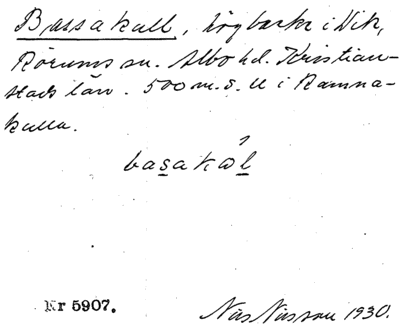 Bassakull, högbacke i Vik,
Rörums sn. Albo hd. Kristian-
stads län. 500 m. S. U i Ramna-
kulla.
basakúl
Kr 5907.
Nils Nilsson 1930.